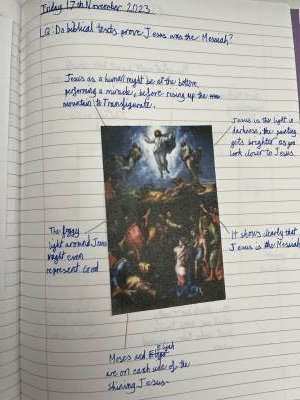 Friday 17th November 2023
LQ: Do biblical texts prove Jesus was the Messiah?
Jesus as a human might be at the bottom
performing a miracle, before rising up the
mountain to Transfigurate.
Jesus is the light in
darkness, the painting
gets brighter as you
look closer to Jesus.
The foggy
light around Jesus
might even
represent God
It shows clearly that
Jesus is the Messiah
Moses and Elijah
are on each side of the
shining Jesus.